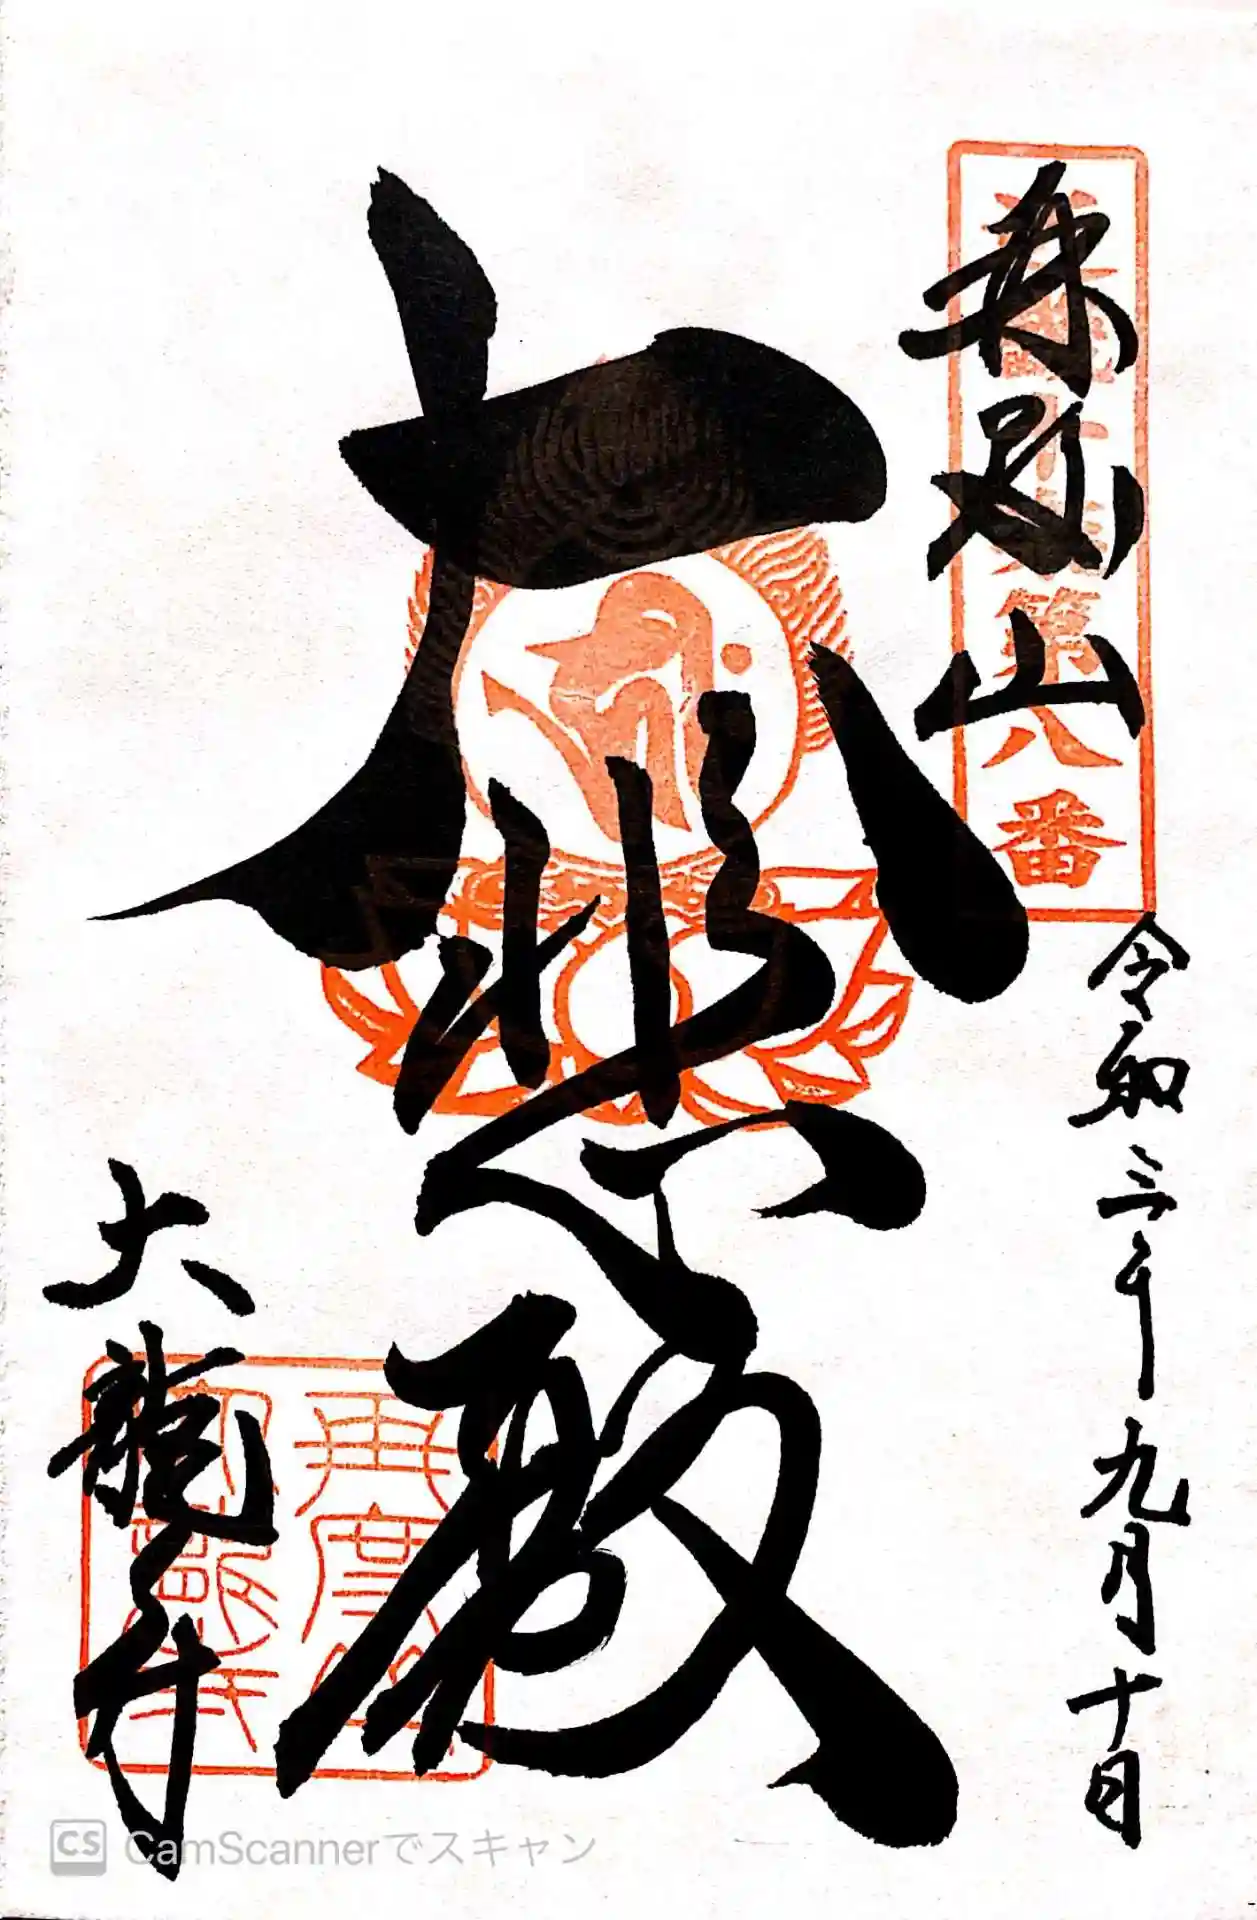 再度山
第八番
令和三年九月十日
大悲殿
大龍寺
再度山
CS CamScannerでスキャン